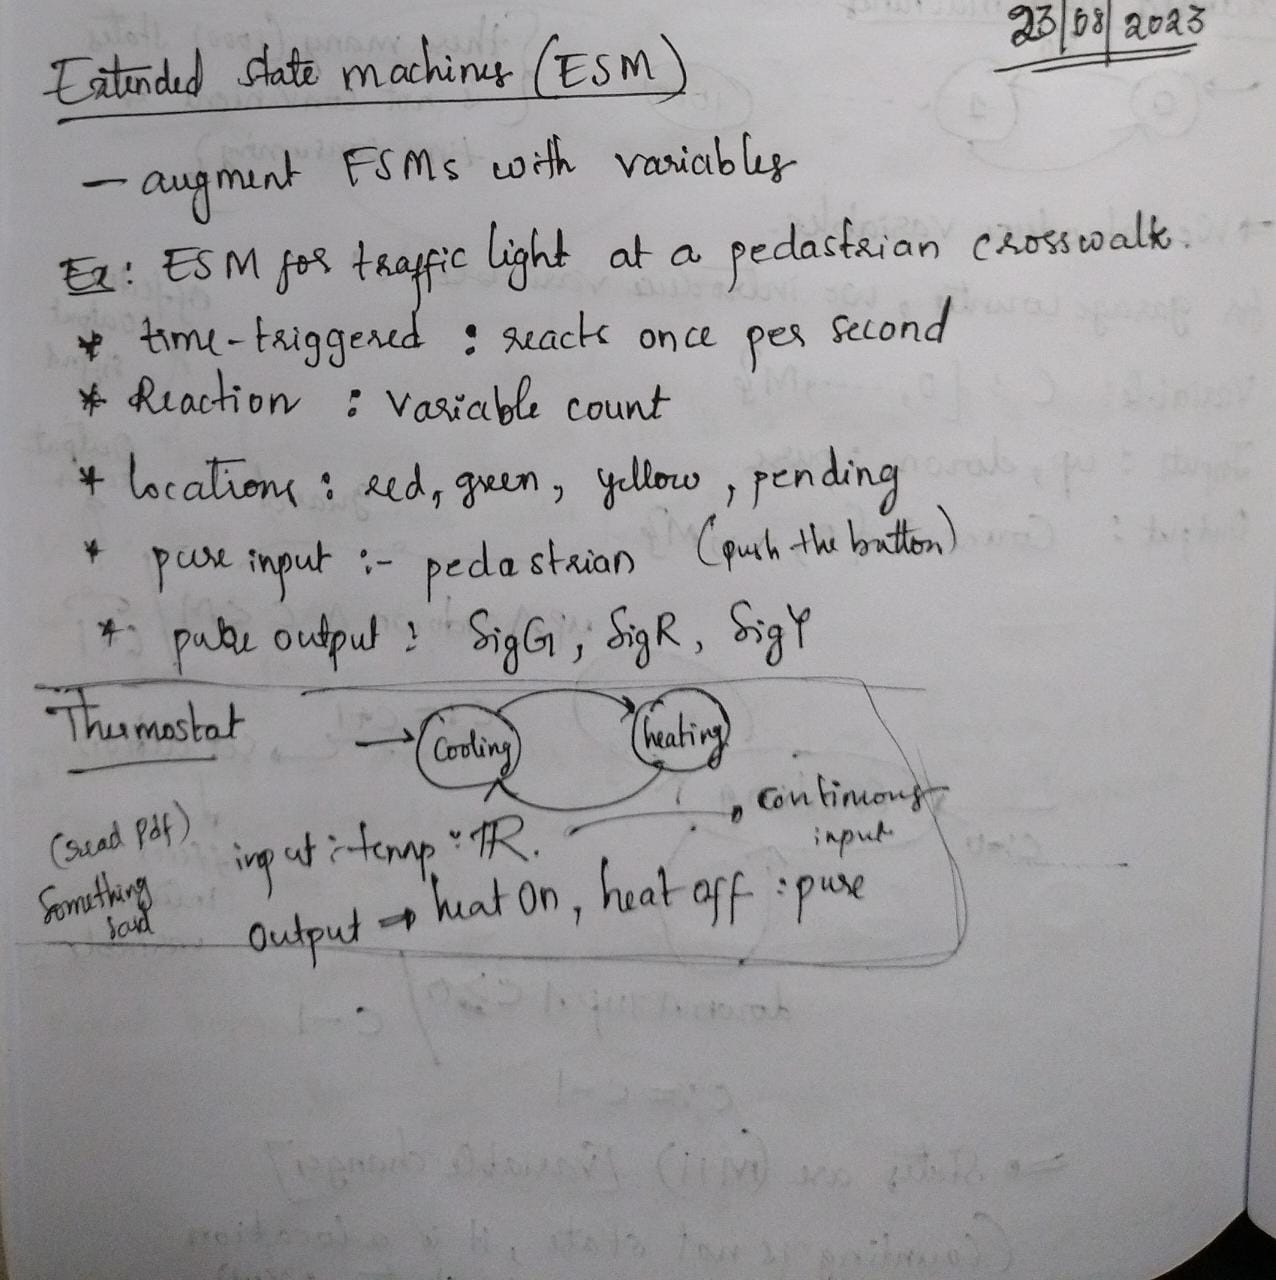 23|08|2023
Extended state machines (ESM)
- augment FSMs with variables
Ex: ESM for traffic light at a pedastrian crosswalk.
* time-triggered : reacts once per second
* Reaction : variable count
* locations : red, green, yellow, pending
* pure input :- pedastrian (push the button)
* pure output : SigG, SigR, SigY
Thermostat
→ Cooling heating
(read pdf) input : temp : ℝ. continuous
input
Something
said
output → heat on, heat off : pure